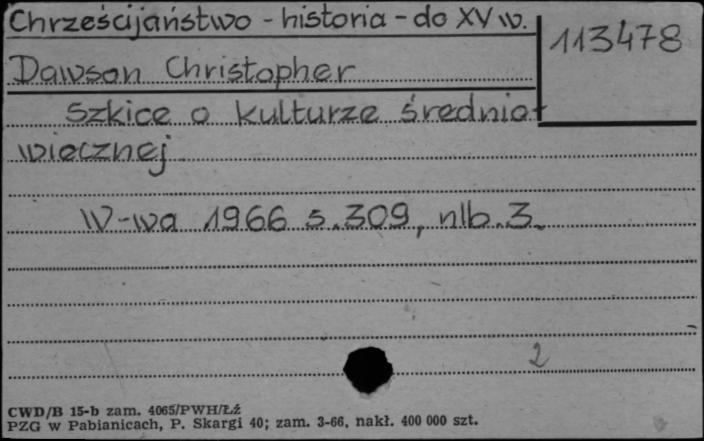 Chrześcijaństwo - historia - do XV w.
113478
Dawson Christopher
Szkice o kulturze średnio-
wiecznej
W-wa 1966 s. 309, nlb. 3.
2
CWD/B 15-b zam. 4065/PWH/Łź
PZG w Pabianicach, P. Skargi 40; zam. 3-66, nakł. 400 000 szt.